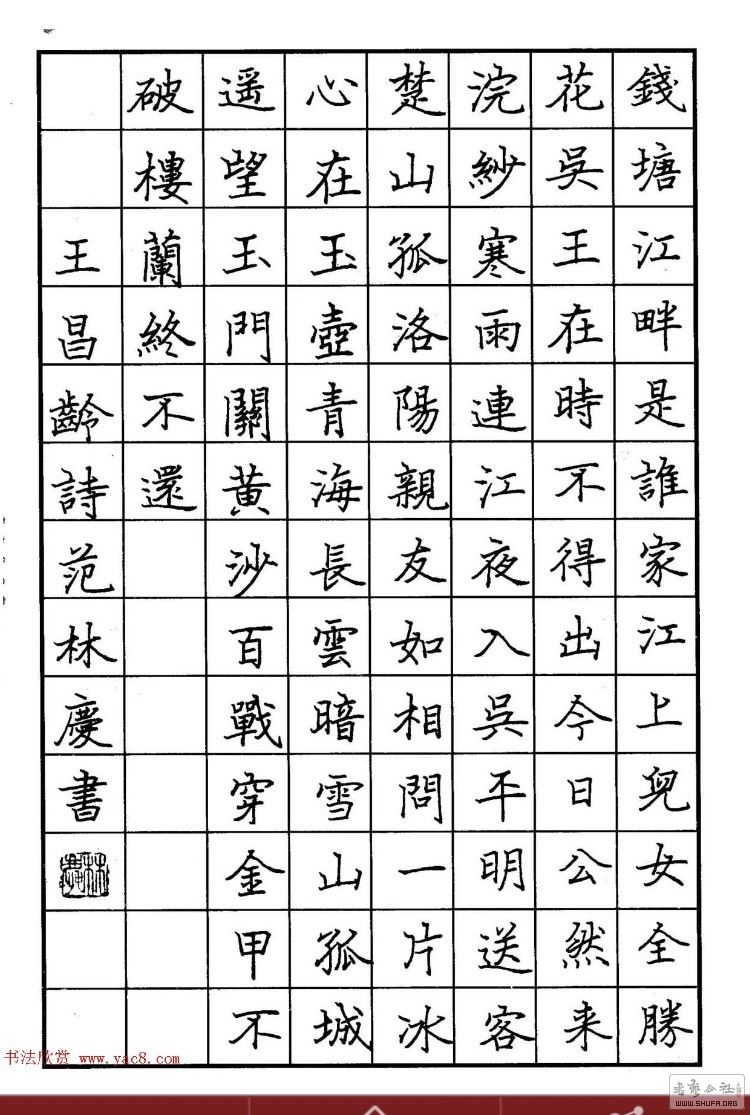 錢塘江畔是誰家江上兒女全勝
花吳王在時不得出今日公然来
浣紗寒雨連江夜入吳平明送客
楚山孤洛陽親友如相問一片冰
心在玉壺青海長雲暗雪山孤城
遥望玉門關黃沙百戰穿金甲不
破樓蘭終不還
王昌齡詩范林慶書
林慶
书法欣赏 www.yac8.com
WWW.SHUFA.ORG